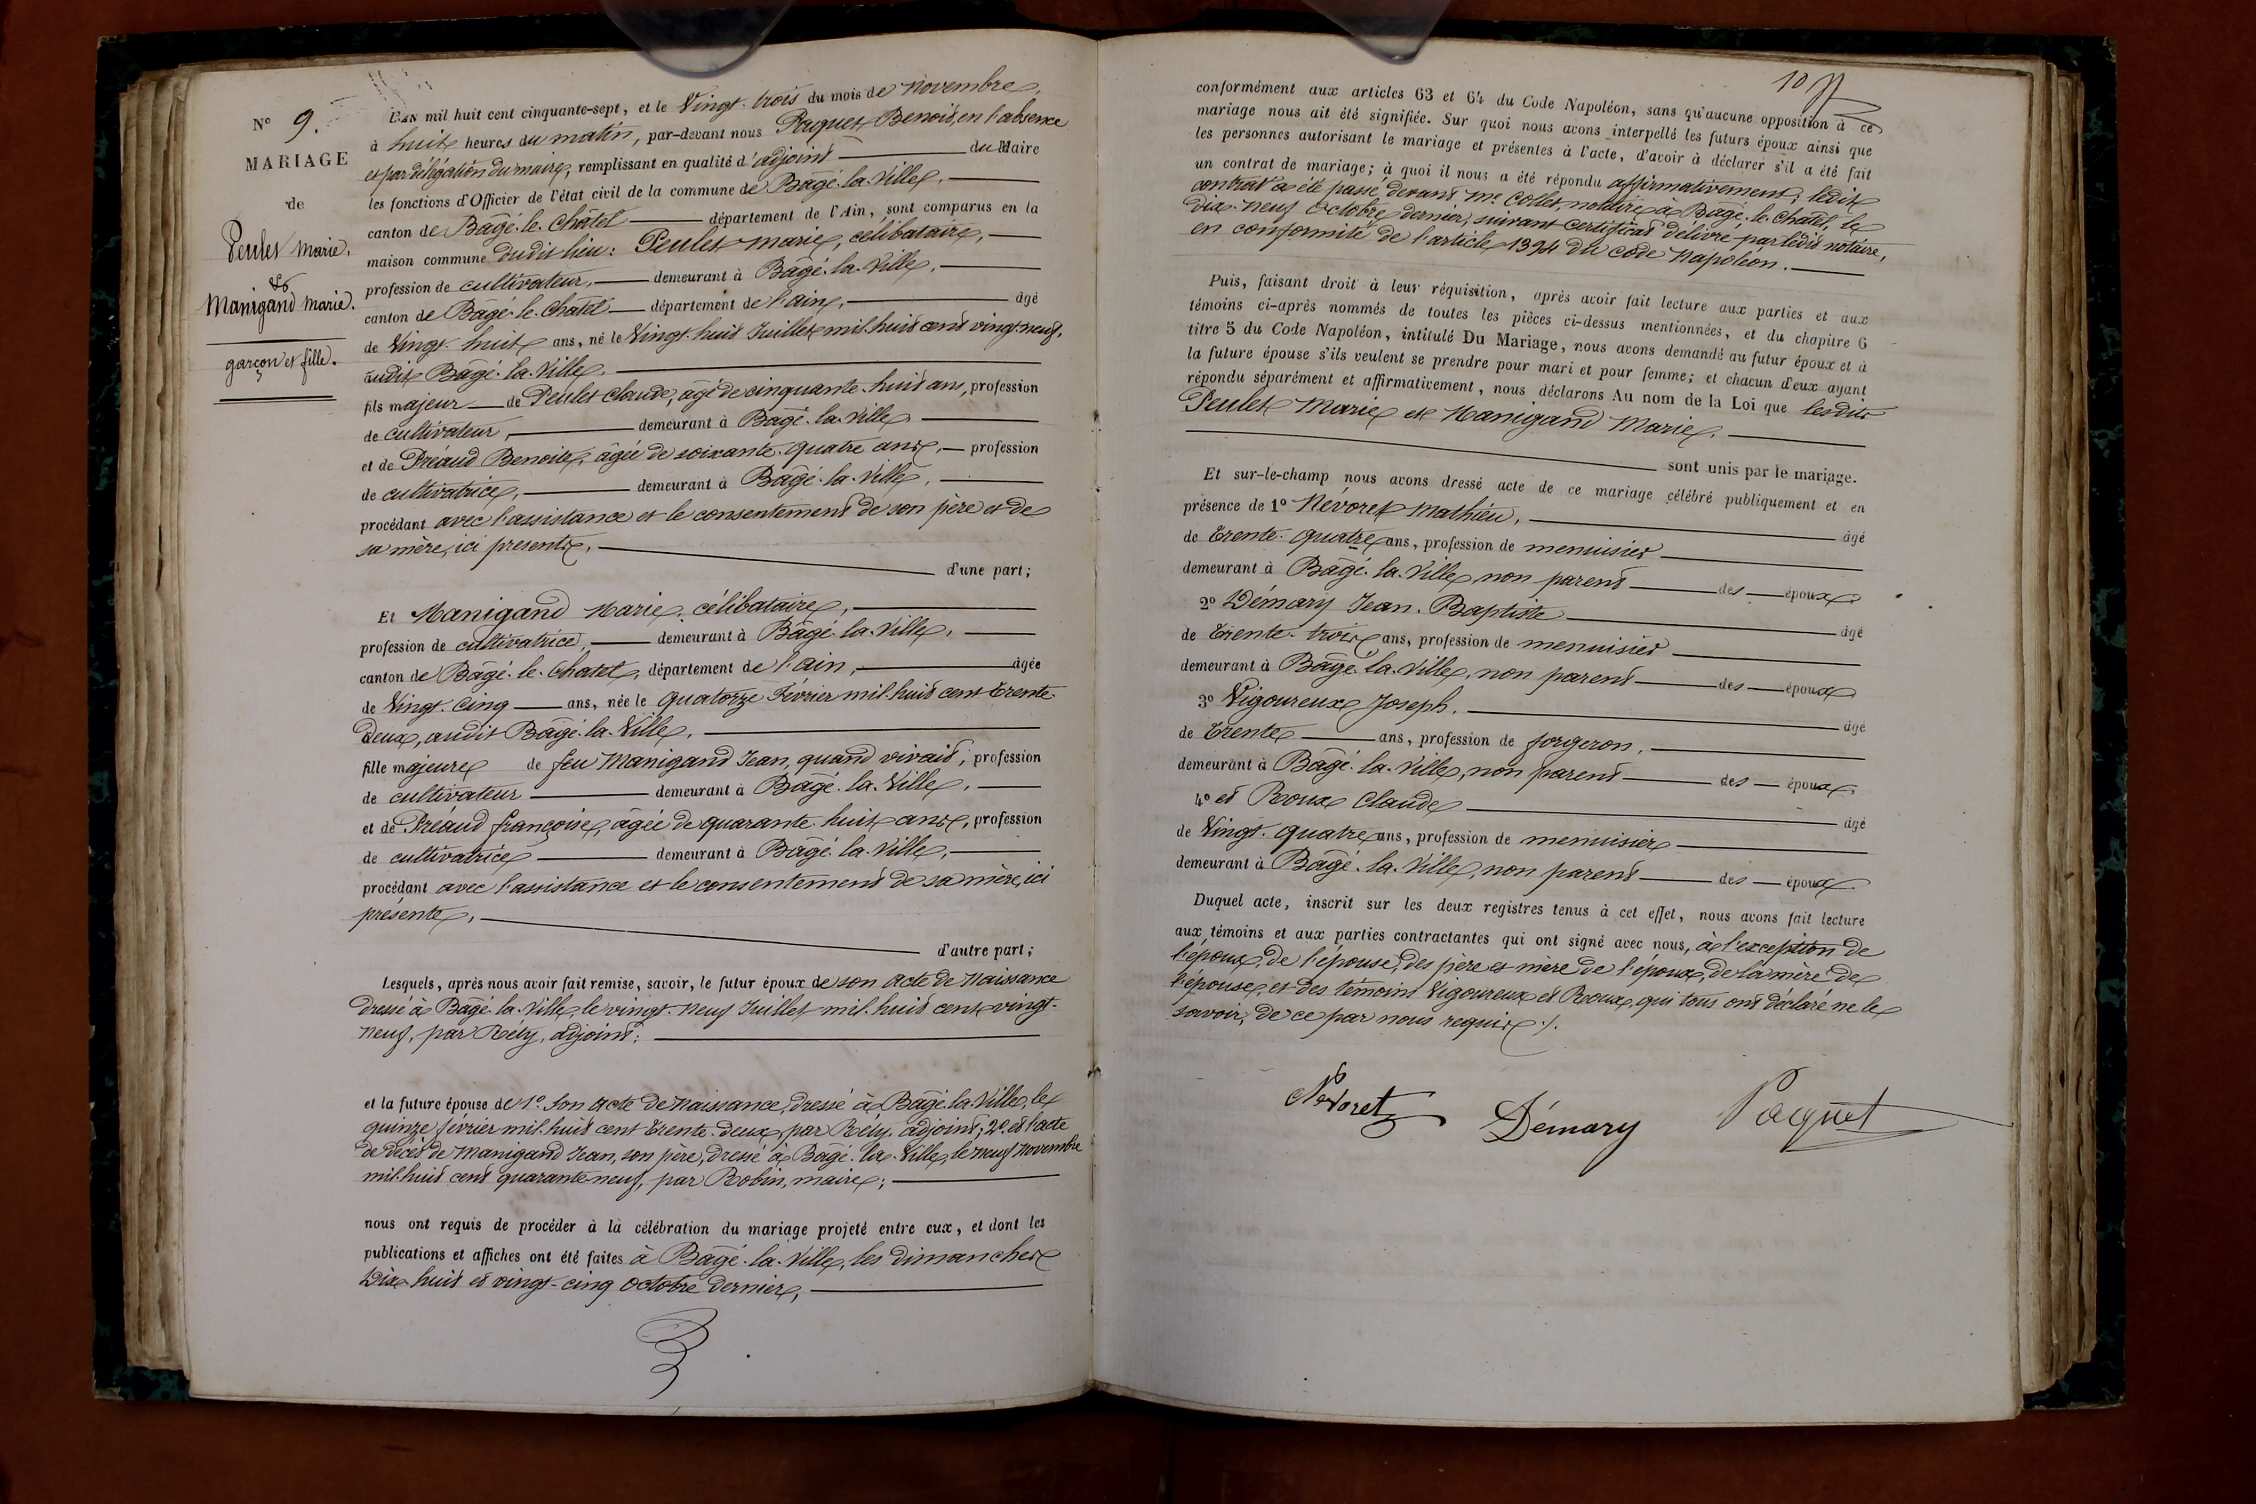 N° 9.
MARIAGE
de
Peulet Marie.
&
Manigand Marie.
garçon et fille.
L'AN mil huit cent cinquante-sept, et le Vingt-trois du mois de Novembre,
à huit heures du matin, par-devant nous Paquet Benoit, en l'absence
et par délégation du maire, remplissant en qualité d'adjoint du Maire
les fonctions d'Officier de l'état civil de la commune de Bâgé-la-Ville,
canton de Bâgé-le-Châtel département de l'Ain, sont comparus en la
maison commune dudit lieu: Peulet Marie, célibataire,
profession de cultivateur, demeurant à Bâgé-la-Ville,
canton de Bâgé-le-Châtel département de l'ain, âgé
de Vingt-huit ans, né le Vingt-huit Juillet mil huit cent vingt-neuf,
audit Bâgé-la-Ville,
fils majeur de Peulet Claude, âgé de cinquante-huit ans, profession
de cultivateur, demeurant à Bâgé-la-Ville
et de Préaud Benoite, âgée de soixante-quatre ans, profession
de cultivatrice, demeurant à Bâgé-la-Ville,
procédant avec l'assistance et le consentement de son père et de
sa mère, ici présents,
d'une part;
Et Manigand Marie, célibataire,
profession de cultivatrice, demeurant à Bâgé-la-Ville,
canton de Bâgé-le-Chatel, département de l'ain, âgée
de Vingt-cinq ans, née le quatorze Février mil huit cent trente-
deux, audit Bâgé-la-Ville,
fille majeure de feu Manigand Jean, quand vivait, profession
de cultivateur demeurant à Bâgé-la-Ville,
et de Préaud françoise, âgée de quarante-huit ans, profession
de cultivatrice demeurant à Bâgé-la-Ville,
procédant avec l'assistance et le consentement de sa mère, ici
présente,
d'autre part;
Lesquels, après nous avoir fait remise, savoir, le futur époux de son acte de Naissance
dressé à Bâgé-la-Ville, le vingt-neuf Juillet mil huit cent vingt-
neuf, par Rély, adjoint;
et la future épouse de 1° son acte de Naissance, dressé à Bâgé-la-Ville, le
quinze février mil huit cent trente-deux, par Rély, adjoint; 2° et l'acte
de décès de Manigand Jean, son père, dressé à Bâgé-la-Ville, le neuf Novembre
mil huit cent quarante-neuf, par Robin, maire;
nous ont requis de procéder à la célébration du mariage projeté entre eux, et dont les
publications et affiches ont été faites à Bâgé-la-Ville, les dimanches
Dix-huit et vingt-cinq octobre dernier,
10
conformément aux articles 63 et 64 du Code Napoléon, sans qu'aucune opposition à ce
mariage nous ait été signifiée. Sur quoi nous avons interpellé les futurs époux ainsi que
les personnes autorisant le mariage et présentes à l'acte, d'avoir à déclarer s'il a été fait
un contrat de mariage; à quoi il nous a été répondu affirmativement; ledit
contrat a été passé devant Me Collet, notaire à Bâgé-le-Chatel, le
dix-neuf Octobre dernier, suivant certificat délivré par ledit notaire,
en conformité de l'article 1394 du code Napoléon.
Puis, faisant droit à leur réquisition, après avoir fait lecture aux parties et aux
témoins ci-après nommés de toutes les pièces ci-dessus mentionnées, et du chapitre 6
titre 5 du Code Napoléon, intitulé Du Mariage, nous avons demandé au futur époux et à
la future épouse s'ils veulent se prendre pour mari et pour femme; et chacun d'eux ayant
répondu séparément et affirmativement, nous déclarons Au nom de la Loi que lesdits
Peulet Marie et Manigand Marie,
sont unis par le mariage.
Et sur-le-champ nous avons dressé acte de ce mariage célébré publiquement et en
présence de 1° Névoret Mathieu, âgé
de trente-quatre ans, profession de menuisier
demeurant à Bâgé-la-Ville, non parent des époux
2° Démary Jean-Baptiste âgé
de trente-trois ans, profession de menuisier
demeurant à Bâgé-la-Ville, non parent des époux
3° Vigoureux Joseph, âgé
de trente ans, profession de forgeron,
demeurant à Bâgé-la-Ville, non parent des époux,
4° et Roux Claude âgé
de Vingt-quatre ans, profession de menuisier
demeurant à Bâgé-la-Ville, non parent des époux.
Duquel acte, inscrit sur les deux registres tenus à cet effet, nous avons fait lecture
aux témoins et aux parties contractantes qui ont signé avec nous, à l'exception de
l'époux, de l'épouse, des père et mère de l'époux, de la mère de
l'épouse, et des témoins Vigoureux et Roux, qui tous ont déclaré ne le
savoir, de ce par nous requis ./.
Nevoret Démary Paquet